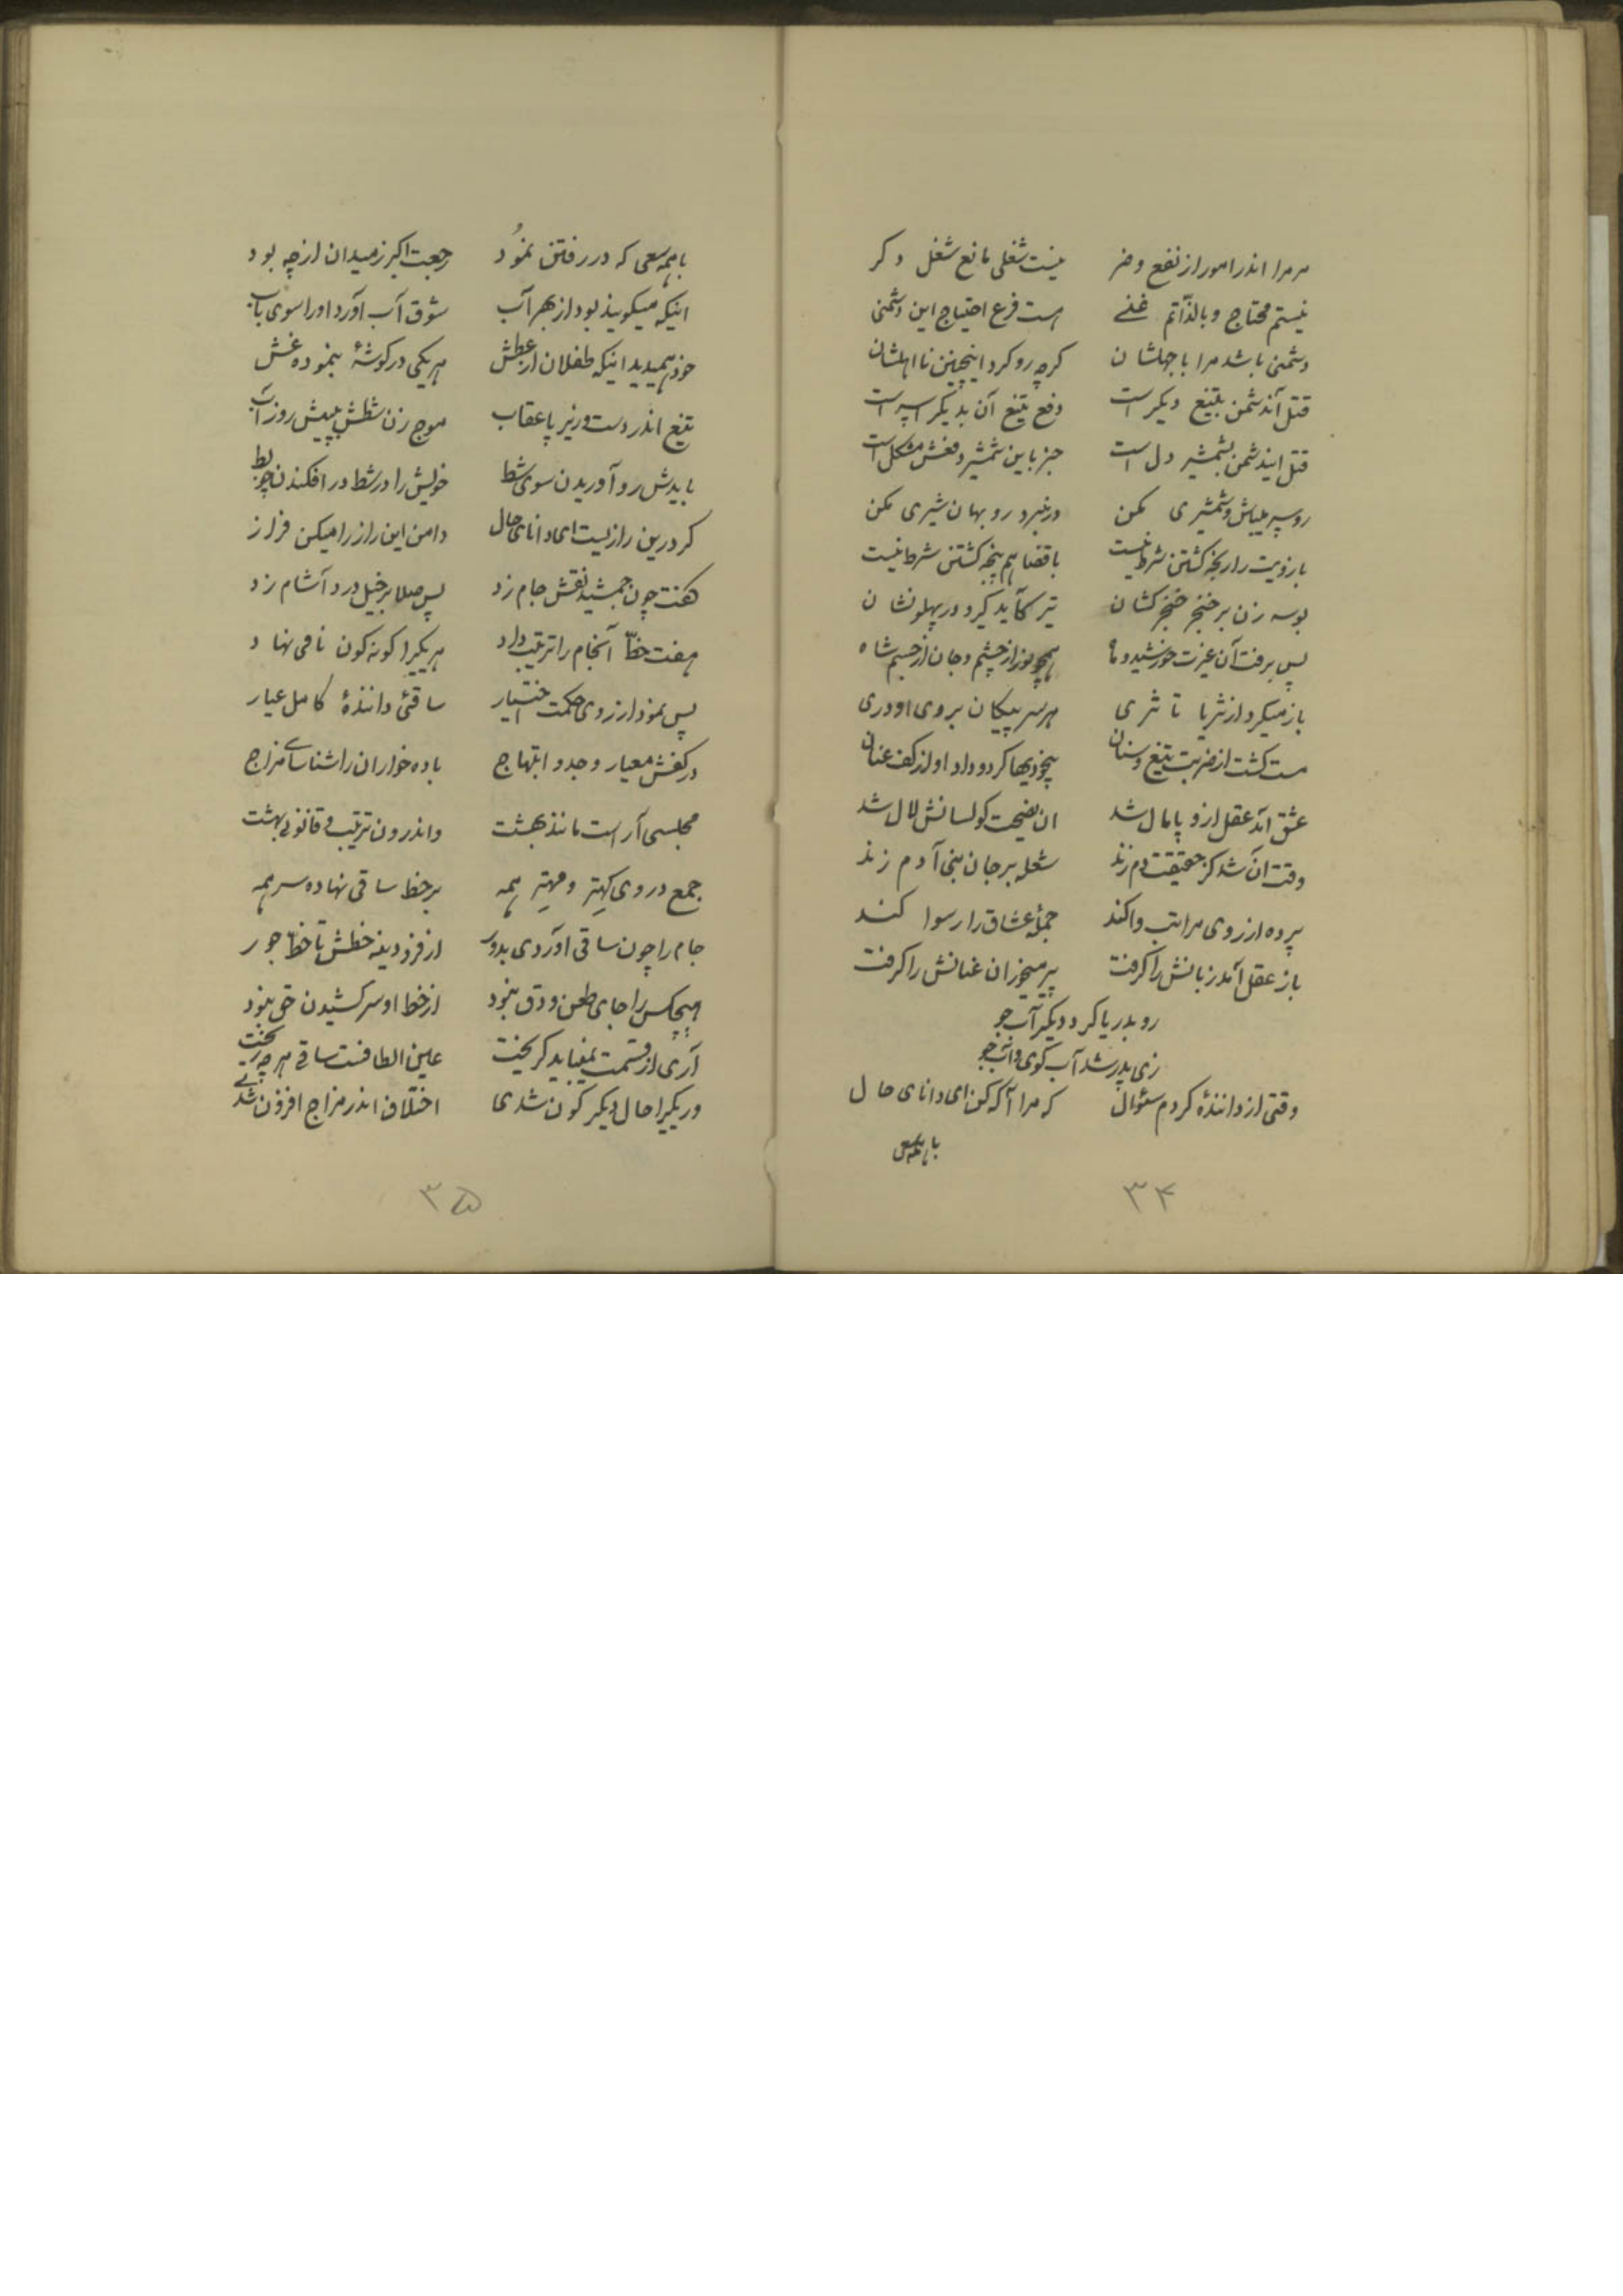 مر مرا اندر امور از نفع و ضر نیست شغلی مانع شغل دکر
نیستم محتاج و بالذّاتم غنے هست فرع احتیاج این دشمنی
دشمنی باشد مرا با جهلشان کرچه رو کرد اینچنین نا اهلشان
قتل آندشمن بتیغ دیکر است دفع تیغ آن بدیکر اسپر است
قتل ایندشمن بشمشیر دل است جز باین شمشیر دفعش مشکل است
رو سپر میباش و شمشیری مکن در نبرد روبهان شیری مکن
بازویت را رنجه کشتن شرط نیست با قضا هم پنجه کشتن شرط نیست
بوسه زن بر خنجر خنجر کشان تیر کآید کیر و در پهلو نشان
پس برفت آن غیرت خورشید و ماه همچو نور از چشم و جان از جسم شاه
باز میکرد از ثریا تا ثری هر سر پیکان بروی او دری
مست کشت از ضربت تیغ و سنان بیخودیها کرد و داد او از کف عنان
عشق آمد عقل ازو پامال شد ان نصیحت کو لسانش لال شد
وقت ان شد کز حقیقت دم زند شعله بر جان بنی آدم زند
پرده از روی مراتب وا کند جملهٔ عشاق را رسوا کند
باز عقل آمد زبانش را کرفت پیر میخوران عنانش را کرفت
رو بدریا کرد دیکر آب جو
زی پدر شد آب کوی و آب جو
وقتی از دانندهٔ کردم سئوال که مرا آکه کن ای دانای حال
با همه سعی
۳۴
با همه سعی که در رفتن نمُود رجعت اکبر ز میدان از چه بود
اینکه میکویند بود از بهر آب شوق آب آورد او را سوی باب
خود همیدید اینکه طفلان از عطش هر یکی در کوشهٔ بنموده غش
تیغ اندر دست و زیر پا عقاب موج زن شطش بپیش روز آب
بایدش رو آوریدن سوی شط خویش را در شط در افکندن چو بط
کر درین رازیست ای دانای حال دامن این راز را میکن فراز
کفت چون جمشید نقش جام زد پس صلا بر خیل درد آشام زد
هفت خطّ آنجام را ترتیب داد هر یکیرا کونه کون نامی نهاد
پس نمود از روی حکمت اختیار ساقئ دانندهٔ کامل عیار
در کفش معیار وجد و ابتهاج باده خواران را شناساے مزاج
مجلسی آراست مانند بهشت واندرون ترتیب و قانونے بهشت
جمع در وی کهتر و مهتر همه بر خط ساقی نهاده سر همه
جام را چون ساقی آوردی بدور از فرودینه خطش تا خطّ جور
هیچکس را جای طعن و دق نبود از خط او سر کشیدن حق نبود
آری از قسمت نمیباید کریخت عین الطافست ساقے هر چه ریخت
ور یکیرا حال دیکر کون شدی اختلاف اندر مزاج افزون شدے
۳۵